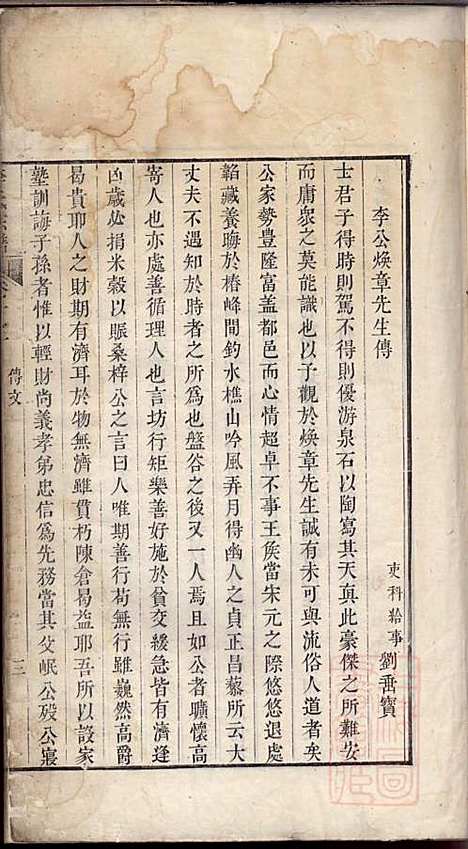 李公煥章先生傳
吏科給事劉畨寶
士君子得時則駕不得則優游泉石以陶寫其天真此豪傑之所難安
而庸衆之莫能識也以予觀於煥章先生誠有未可與流俗人道者矣
公家勢豐隆富盖都邑而心情超卓不事王矦當宋元之際悠悠退處
韜藏養晦於椿峰間釣水樵山吟風弄月得幽人之貞正昌藜所云大
丈夫不遇知於時者之所為也盤谷之後又一人焉且如公者曠懷高
寄人也亦處善循理人也言坊行矩樂善好施於貧交緩急皆有濟逢
凶歲必捐米穀以賑桑梓公之言曰人唯期善行苟無行雖巍然高爵
曷貴耶人之財期有濟耳於物無濟雖貫朽陳倉曷益耶吾所以設家
塾訓誨子孫者惟以輕財尚義孝弟忠信為先務當其父岷公歿公寢
傳文
三